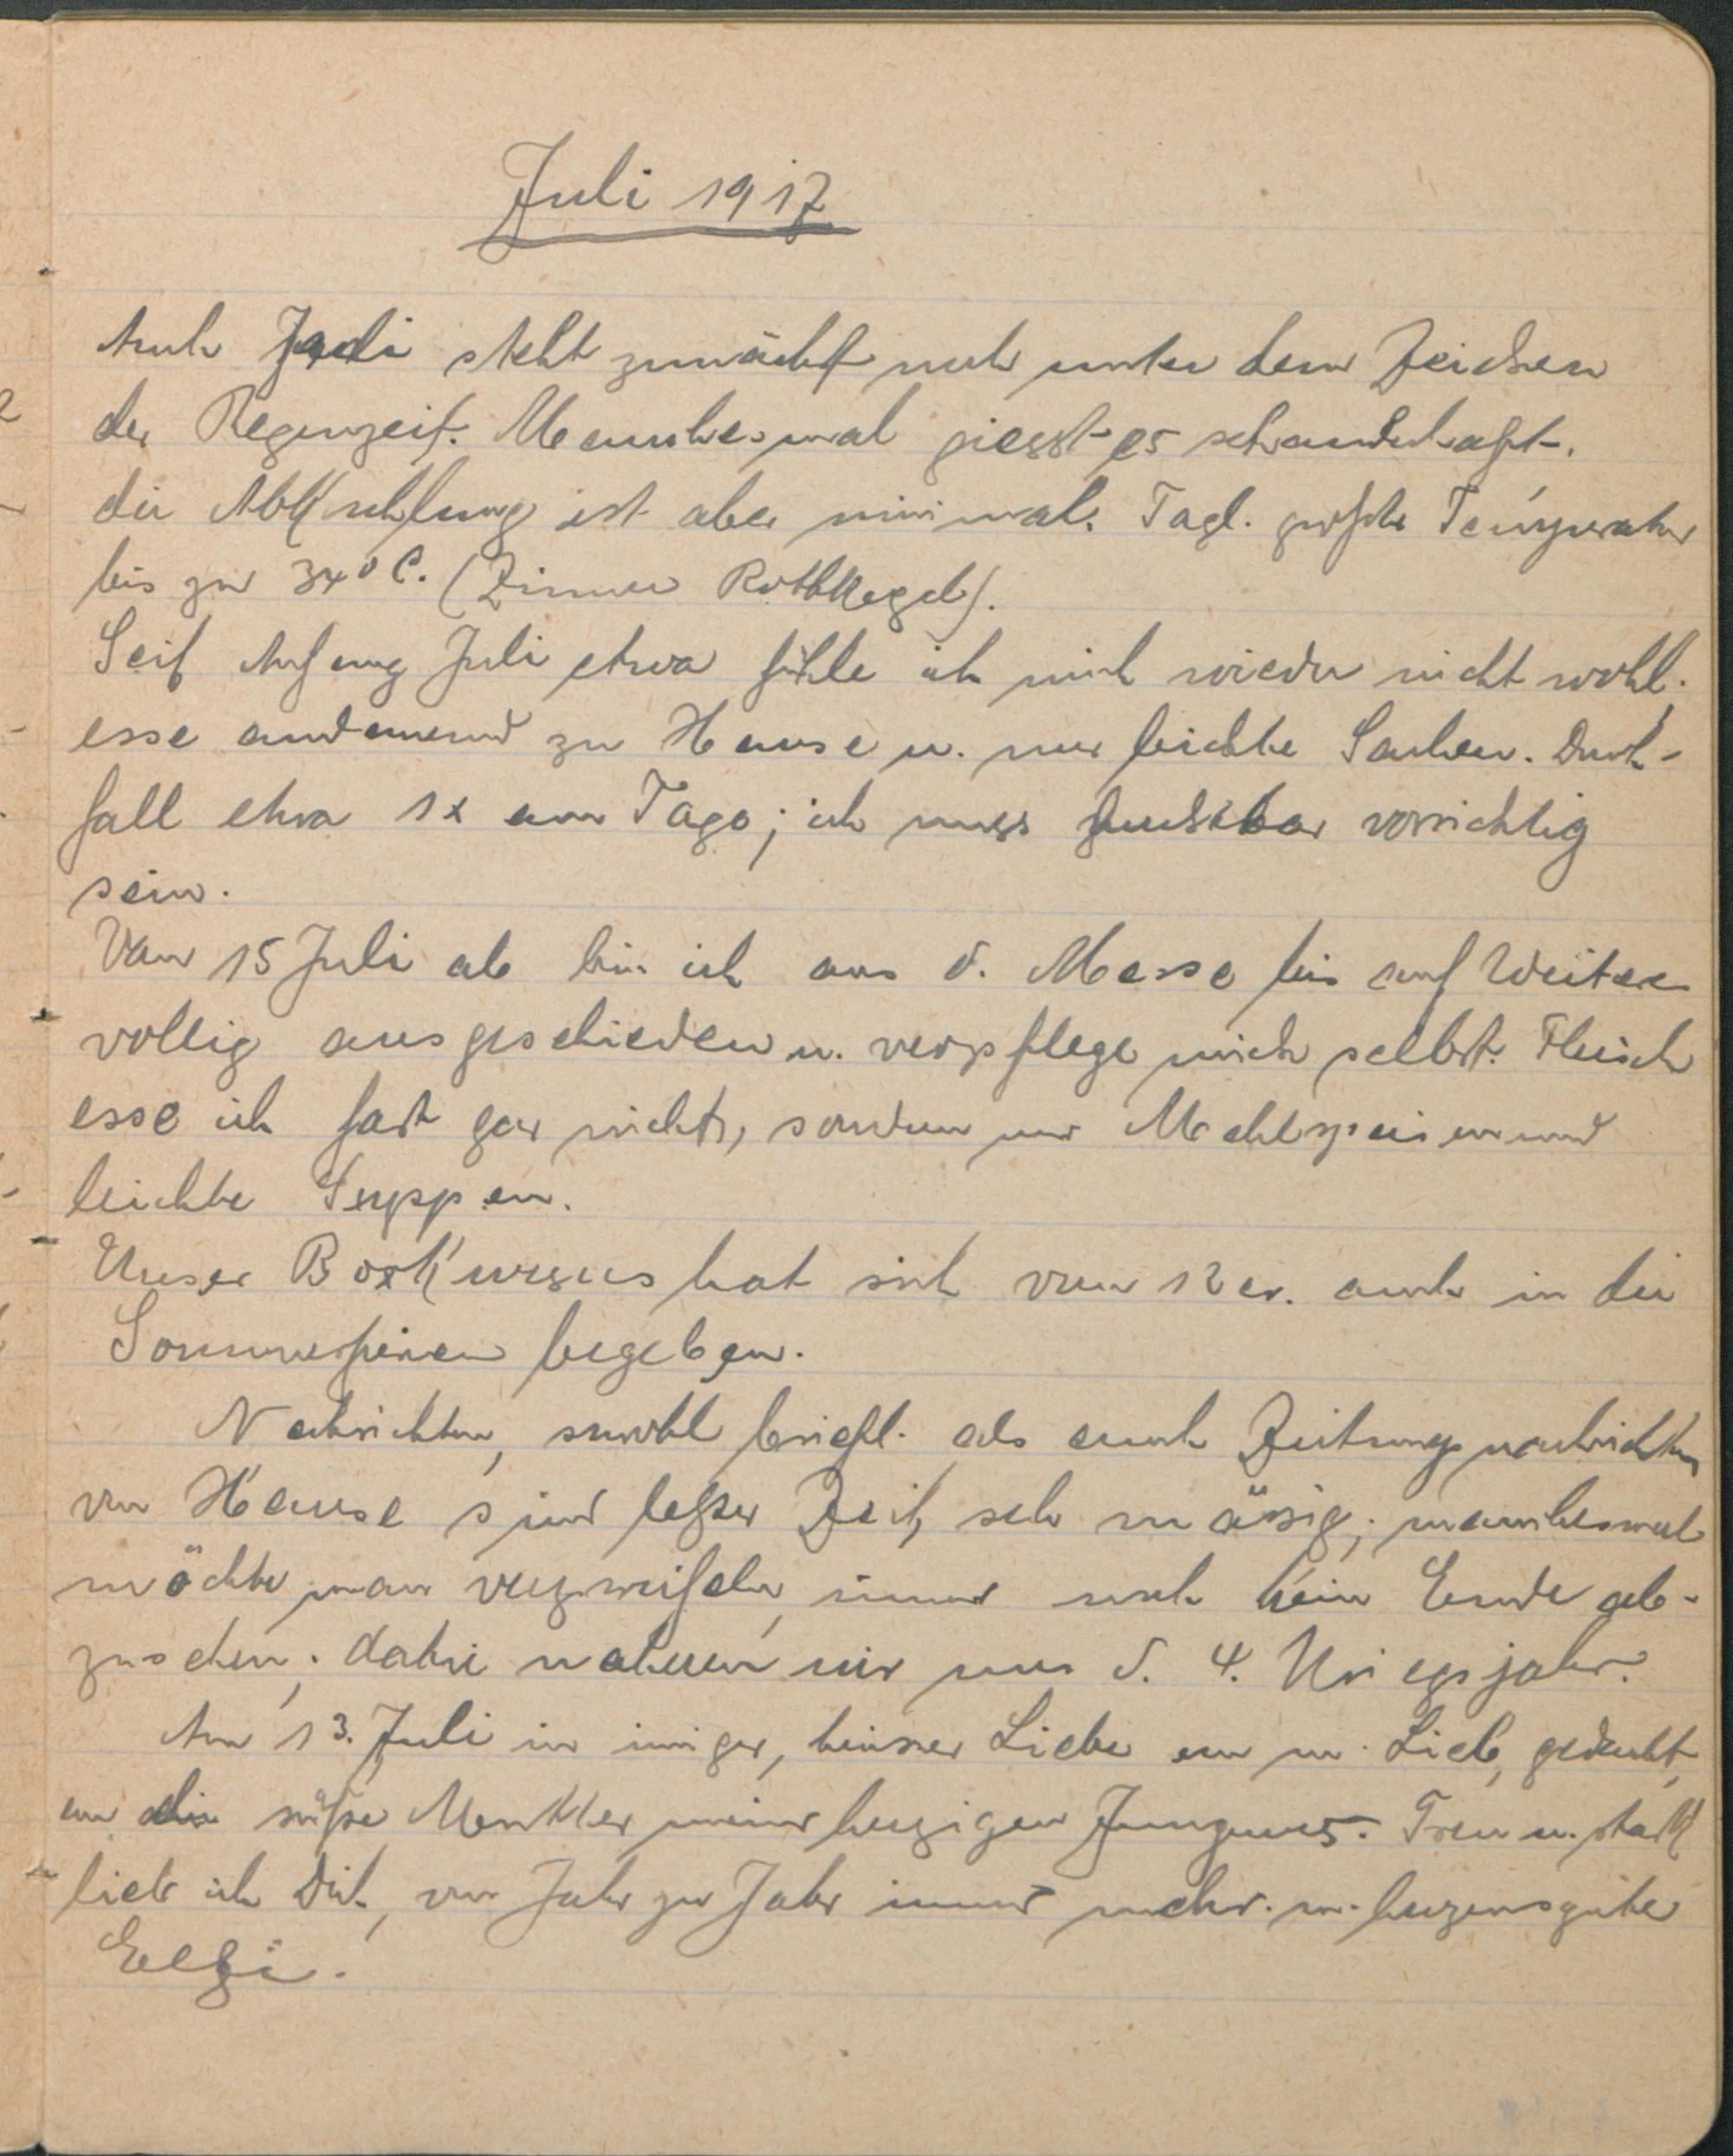 Juli 1917
Auch Juli steht zunächst noch unter dem Zeichen
der Regenzeit. Manchesmal giesst es schauderhaft.
die Abkühlung ist aber minimal. Tägl. größte Temperatur
bis zu 34° C. (Zimmer Rothkegel).
Seit Anfang Juli etwa fühle ich mich wieder nicht wohl.
esse andauernd zu Hause u. nur leichte Sachen. Durch-
fall etwa 1x am Tage; ich muss furchtbar vorsichtig
sein.
Vom 15 Juli ab bin ich aus d. Messe bis auf Weiteres
vollig ausgeschieden u. verpflege mich selbst. Fleisch
esse ich fast gar nicht, sondern nur Mehlspeisen und
leichte Suppen.
Unser Boxkursus hat sich vom 12 er. auch in die
Sommerferien begeben.
Nachrichten, sowohl briefl. als auch Zeitungsnachrichten
von Hause sind letzter Zeit, sehr mässig; manchesmal
möchte man verzweifeln, immer noch kein Ende ab-
zusehen; dabei nahen wir uns d. 4. Kriegsjahr.
Am 13. Juli in inniger, heisser Liebe an m. Lieb, gedacht,
an die süße Mutter meines herzigen Jungens. Treu u. stark
lieb ich Dich, von Jahr zu Jahr immer mehr. m. herzensgute